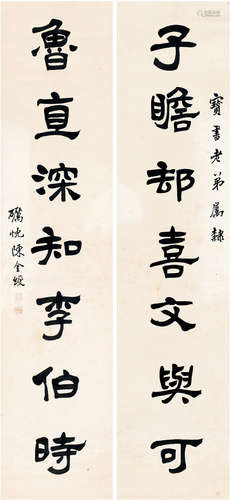 寶書老弟屬隸
子瞻却喜文與可
魯直深知李伯時
陳全綬